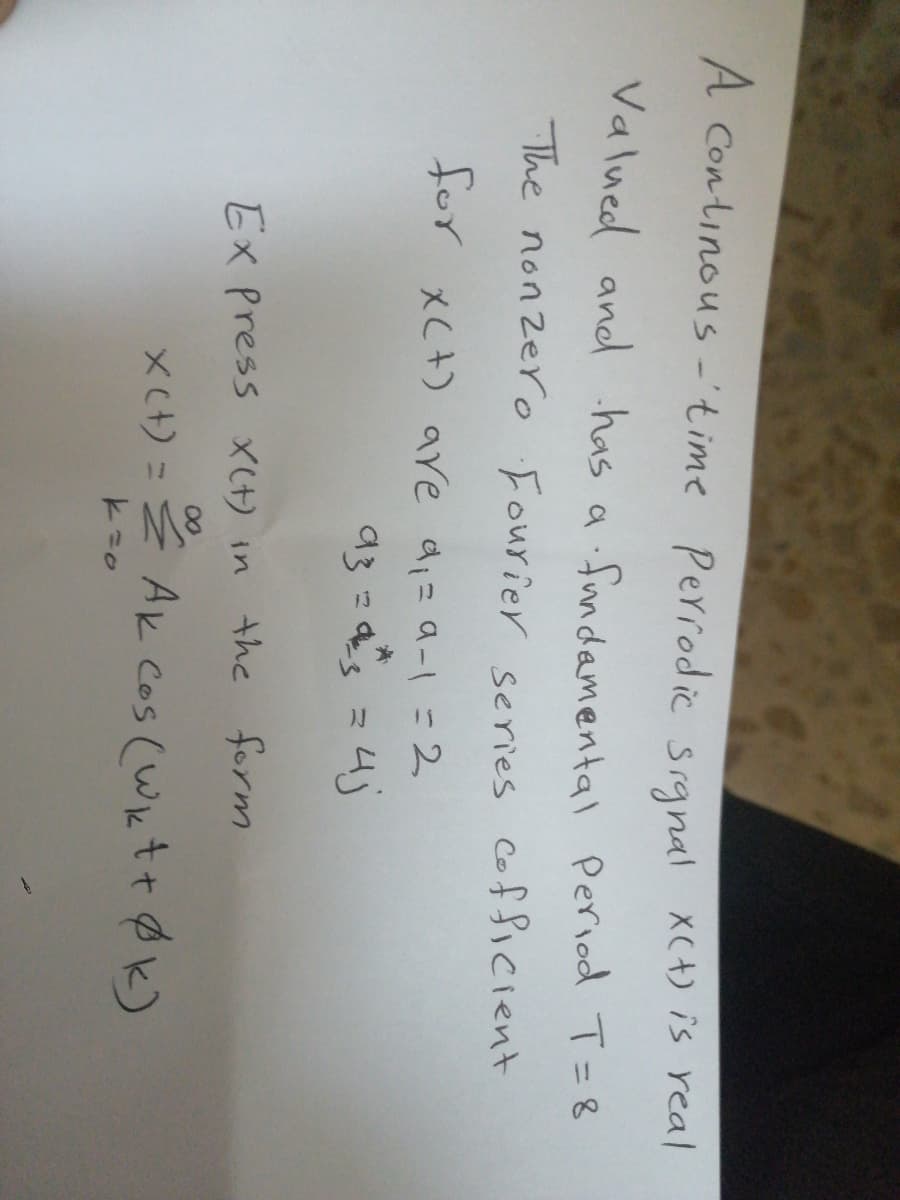 A Continous-time Perrodic signal x(t) is real
Valued and has a fundamental Period T=8
The nonzero Fourier series cofficient
for x(t) are a₁ = a-1 = 2
a3 = a*-3 = 4j
Express x(t) in the form
x(t) = ∞Σk=0 Ak Cos(ωk t + øk)